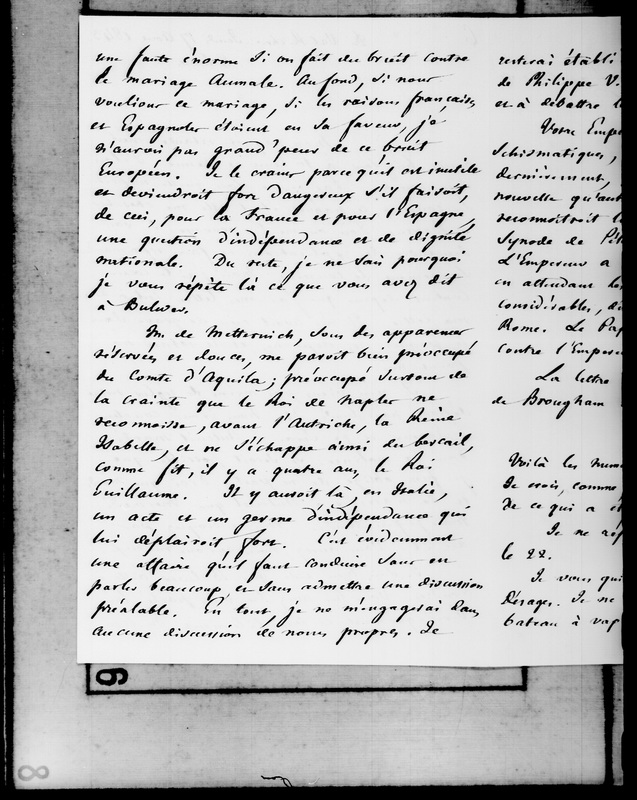 une faute énorme si on fait du bruit contre
le mariage Aumale. Au fond, si nous
voulions ce mariage, si les raisons françaises
et Espagnoles étoient en sa faveur, je
n'aurois pas grand'peur de ce bruit
Européen. Je le crains parcequ'il est inutile
et deviendroit fort dangereux s'il faisoit,
de ceci, pour la France et pour l'Espagne,
une question d'indépendance et de dignité
nationale. Du reste, je ne sais pourquoi
je vous répète là ce que vous avez dit
à Bulwer.
M. de Metternich, sous des apparences
réservées et douces, me paroit bien préoccupé
du Comte d'Aquila; préoccupé surtout de
la crainte que le Roi de Naples ne
reconnoisse, avant l'Autriche, la Reine
Isabelle, et ne s'échappe ainsi du bercail,
comme fit, il y a quatre ans, le Roi
Guillaume. Il y auroit là, en Italie,
un acte et un germe d'indépendance qui
lui déplairoit fort. C'est évidemment
une affaire qu'il faut conduire sans en
parler beaucoup et sans admettre une discussion
préalable. En tout, je ne m'engagerai dans
aucune discussion de noms propres. Je
resterai établi
de Philippe V.
et à débattre
Votre Empe
Schismatiques,
dernièrement,
nouvelle qu'
reconnoitroit
Synode de
L'Empereur a
en attendant
considérables,
Rome. Le Pap
contre l'Empere
La lettre
de Brougham
Voilà les
Je crois, comme
de ce qui a
Je ne
le 22.
Je vous
Désages. Je ne
bateau à vap
9
8